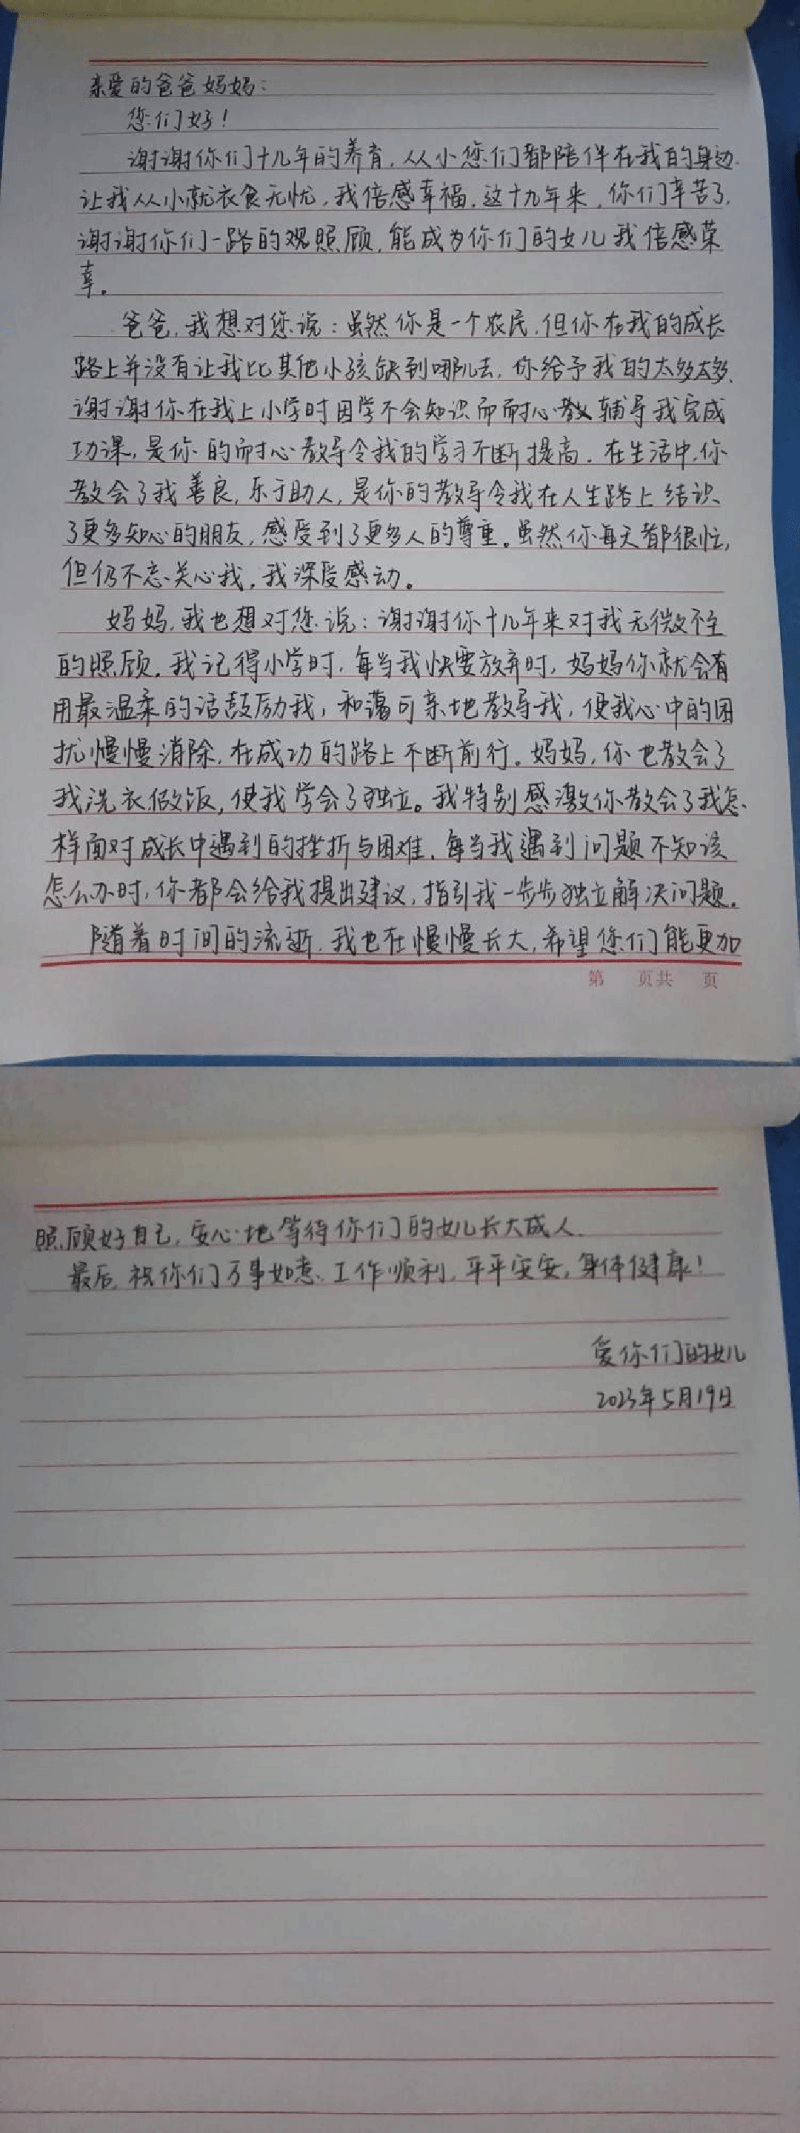 亲爱的爸爸妈妈：
您们好！
谢谢你们十几年的养育，从小您们都陪伴在我的身边，
让我从小就衣食无忧，我倍感幸福，这十九年来，你们辛苦了，
谢谢你们一路的观照顾，能成为你们的女儿我倍感荣
幸。
爸爸，我想对您说：虽然你是一个农民，但你在我的成长
路上并没有让我比其他小孩缺到哪儿去，你给予我的太多太多，
谢谢你在我上小学时因学不会知识而耐心教辅导我完成
功课，是你的耐心教导令我的学习不断提高．在生活中，你
教会了我善良，乐于助人，是你的教导令我在人生路上结识
了更多知心的朋友，感受到了更多人的尊重。虽然你每天都很忙，
但仍不忘关心我，我深受感动。
妈妈，我也想对您说：谢谢你十几年来对我无微不至
的照顾．我记得小学时，每当我快要放弃时，妈妈你就会有
用最温柔的话鼓励我，和蔼可亲地教导我，使我心中的困
扰慢慢消除，在成功的路上不断前行。妈妈，你也教会了
我洗衣做饭，使我学会了独立。我特别感激你教会了我怎
样面对成长中遇到的挫折与困难．每当我遇到问题不知该
怎么办时，你都会给我提出建议，指引我一步步独立解决问题。
随着时间的流逝，我也在慢慢长大，希望您们能更加
第 页共 页
照顾好自己，安心地等待你们的女儿长大成人．
最后，祝你们万事如意、工作顺利，平平安安，身体健康！
爱你们的女儿
2023年5月19日